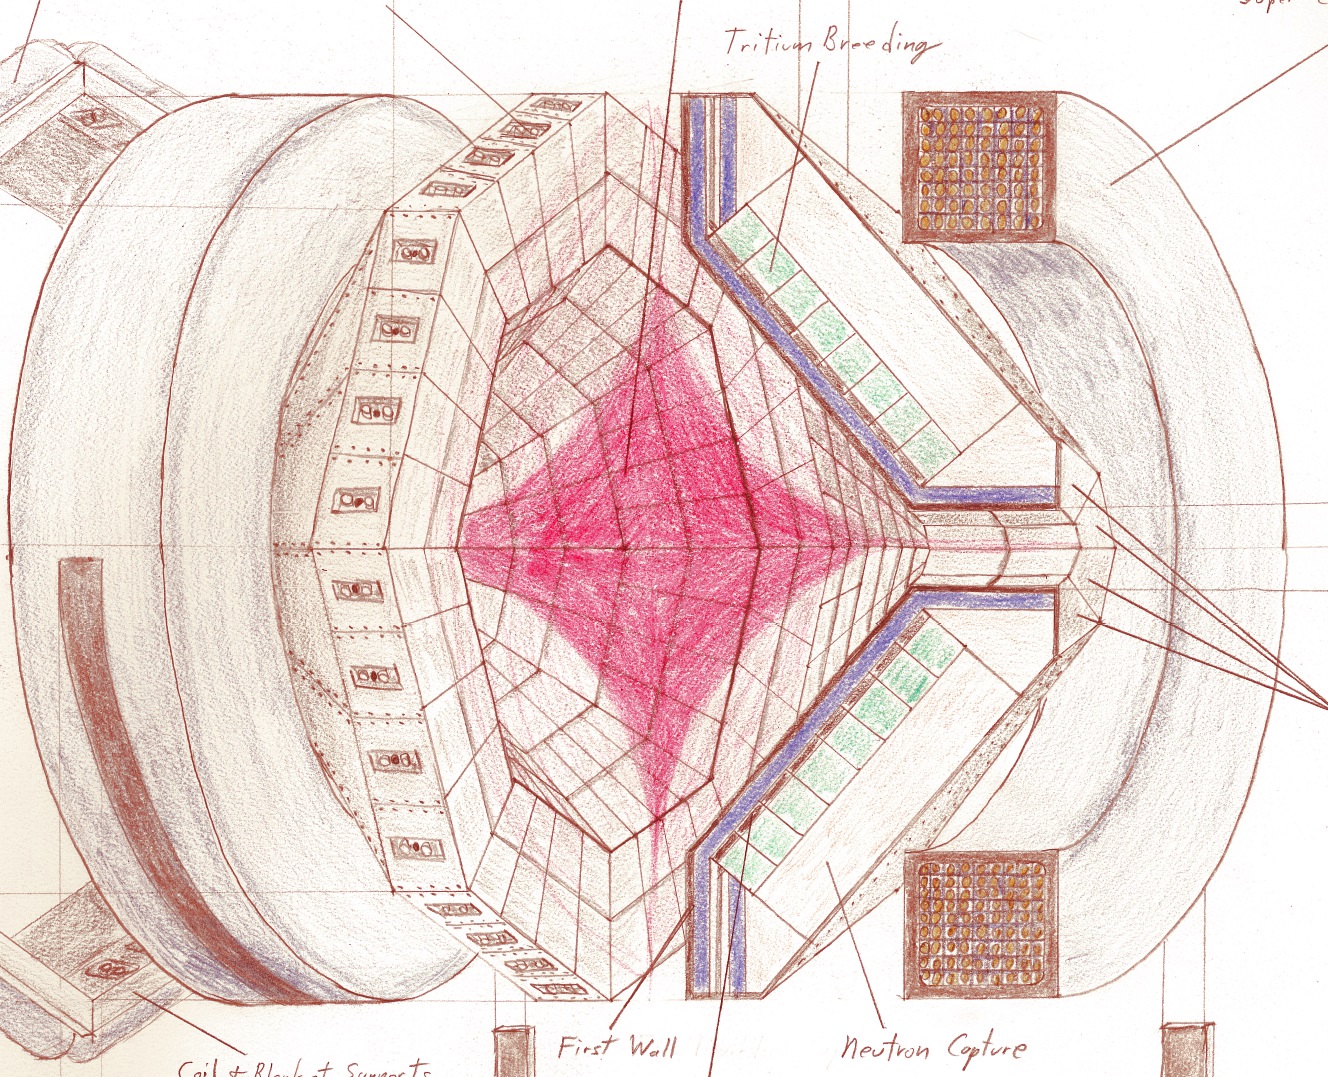 Super
Tritium Breeding
First Wall
Neutron Capture
Coil & Blanket Supports